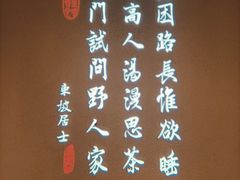 困路長惟欲睡
高人渴漫思茶
門試問野人家
東坡居士